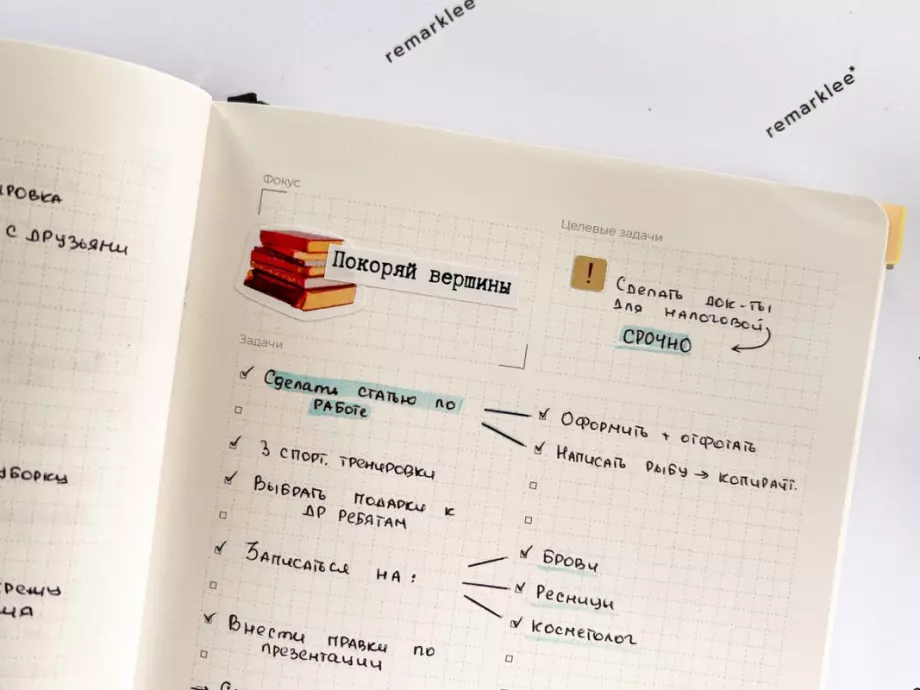 remarklee
remarklee*
ровка
с друзьями
уборку
Фокус
Покоряй вершины
Целевые задачи
!
Сделать док-ты
для налоговой
СРОЧНО
Задачи
Сделать статью по
работе
3 спорт. тренировки
Выбрать подарки к
др ребятам
Записаться на:
Внести правки по
презентации
Оформить + отфотать
Написать рыбу → копирайт.
Брови
Ресницы
Косметолог